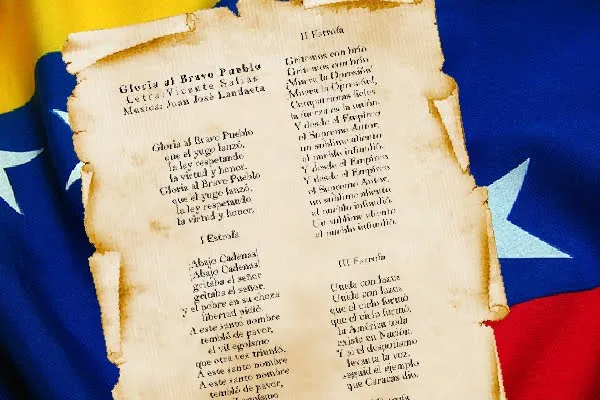 Gloria al Bravo Pueblo
Letra: Vicente Salias
Musica: Juan José Landaeta
Gloria al Bravo Pueblo
que el yugo lanzó,
la ley respetando
la virtud y honor.
Gloria al Bravo Pueblo
que el yugo lanzó,
la ley respetando
la virtud y honor.
I Estrofa
¡Abajo Cadenas!
¡Abajo Cadenas!
gritaba el señor
gritaba el señor,
y el pobre en su choza
libertad pidió.
A este santo nombre
tembló de pavor,
el vil egoísmo
que otra vez triunfó.
A este santo nombre
tembló de pavor,
egoísmo
II Estrofa
Gritemos con brío
Gritemos con brío
¡Muera la Opresión!
¡Muera la Opresión!,
Compatriotas fieles
la fuerza es la unión.
Y desde el Empíreo
el Supremo Autor,
un sublime aliento
al pueblo infundió.
Y desde el Empíreo
el Supremo Autor,
un sublime aliento
al pueblo infundió.
Un sublime aliento
al pueblo infundió.
III Estrofa
Unida con lazos
Unida con lazos
que el cielo formó
que el cielo formó,
la América toda
existe en Nación.
Y si el despotismo
levanta la voz,
seguid el ejemplo
que Caracas dio.